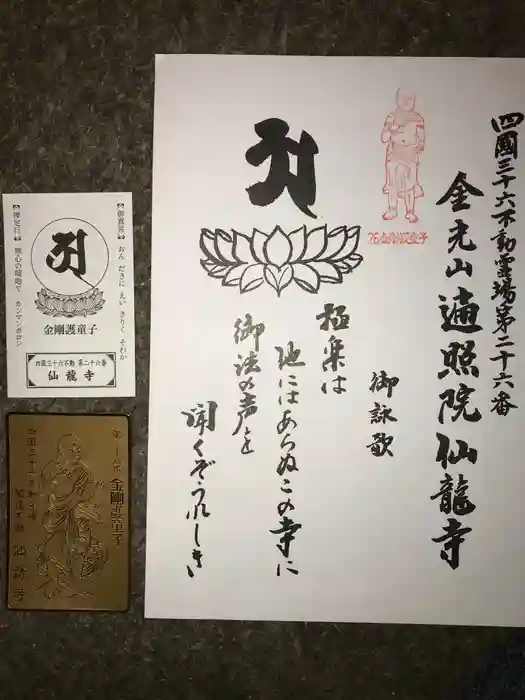 四國三十六不動霊場第二十六番
金光山遍照院仙龍寺
26金剛護童子
御詠歌
極楽は
他にはあらぬこの寺に
御法の声を
聞くぞうれしき
【御真言】 おん だきに えい きりく そわか
【禅定行】 無心の境地で カンマンボロン
金剛護童子
四国三十六不動 第二十六番
仙龍寺
金剛護童子
仙龍寺